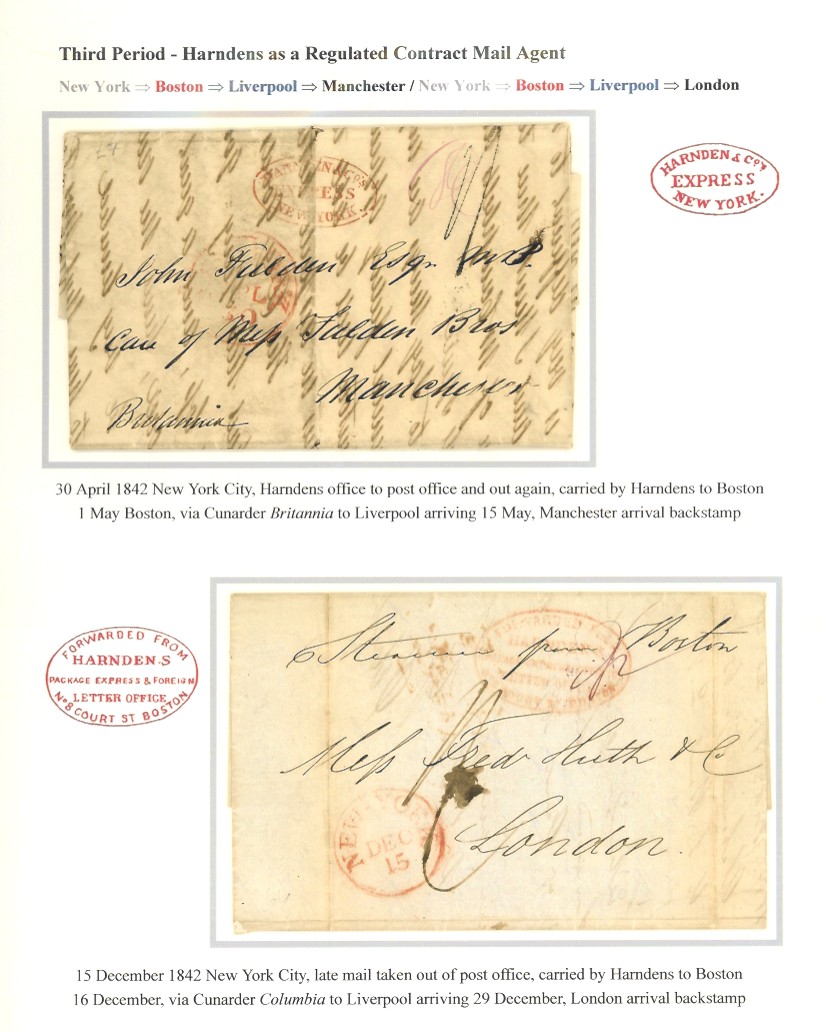 Third Period - Harndens as a Regulated Contract Mail Agent
New York ⇒ Boston ⇒ Liverpool ⇒ Manchester / New York ⇒ Boston ⇒ Liverpool ⇒ London
HARNDEN & Co's
EXPRESS
NEW YORK.
HARNDEN & Co's
EXPRESS
NEW YORK.
John Fielden Esqr M.P.
Care of Mess Fielden Bros
Manchester
Britannia
30 April 1842 New York City, Harndens office to post office and out again, carried by Harndens to Boston
1 May Boston, via Cunarder Britannia to Liverpool arriving 15 May, Manchester arrival backstamp
FORWARDED FROM
HARNDEN.S
PACKAGE EXPRESS & FOREIGN
LETTER OFFICE
No 8 COURT ST BOSTON
FORWARDED FROM
HARNDEN.S
Steamer from Boston
Mess Fredk Huth & Co
London.
NEW YORK
DEC
15
15 December 1842 New York City, late mail taken out of post office, carried by Harndens to Boston
16 December, via Cunarder Columbia to Liverpool arriving 29 December, London arrival backstamp